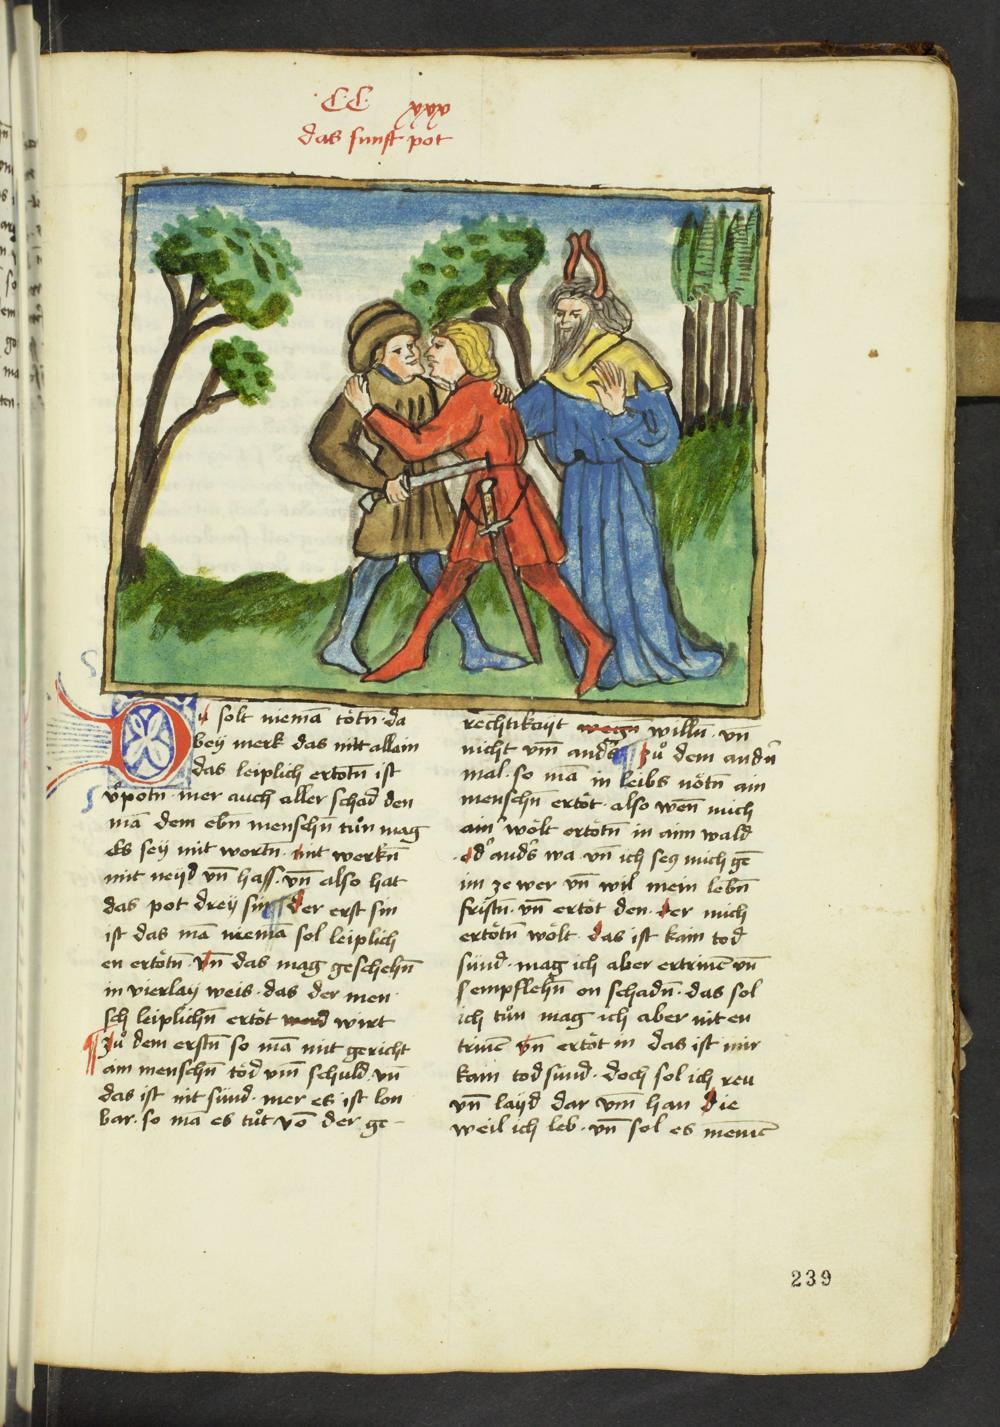 ·CC· xxx
das funft pot
Du solt niemā tötn̄ · da
bey merk das nitt allain
das leiplich ertötn̄ ist
v̓potn̄ · mer auch aller schad den
mā dem ebn̄ menschn̄ tůn mag
es sey mit wortn̄ · mit werkn̄
mit neyd vn̄ hass · vn̄ also hat
das pot drey sin̄ Der erst sin
ist das mā niemā sol leiplich
en ertötn̄ · vn̄ das mag geschehn̄
in vierlay weis · das der men
sch leiplichn̄ ertöt werd wirt
¶ Zů dem erstn̄ so mā mit gericht
ain menschn̄ töd vm̄ schuld · vn̄
das ist nit sünd · mer es ist lon
bar · so mā es tůt vō der ge-
rechtikayt wegn willn̄ · vn̄
nicht vm̄ ands̓ ¶ Zů dem andn̄
mal · so mā in leibs nötn̄ ain
menschn̄ ertöt · also wen̄ mich
ain̓ wölt ertötn̄ in aim wald
od̓ ands̓ wa · vn̄ ich secz mich gē
im ze wer vn̄ wil mein lebn̄
fristn̄ · vn̄ ertöt den · der mich
ertötn̄ wölt · das ist kain tod
sünd · mag ich aber ertrinē vn̄
empflehn̄ on schadn̄ · das sol
ich tůn mag ich aber nit en
trinē vn̄ ertöt in das ist mir
kain tod sünd · doch sol ich reu
vn̄ layd dar vm̄ han die
weil ich leb · vn̄ sol es
239